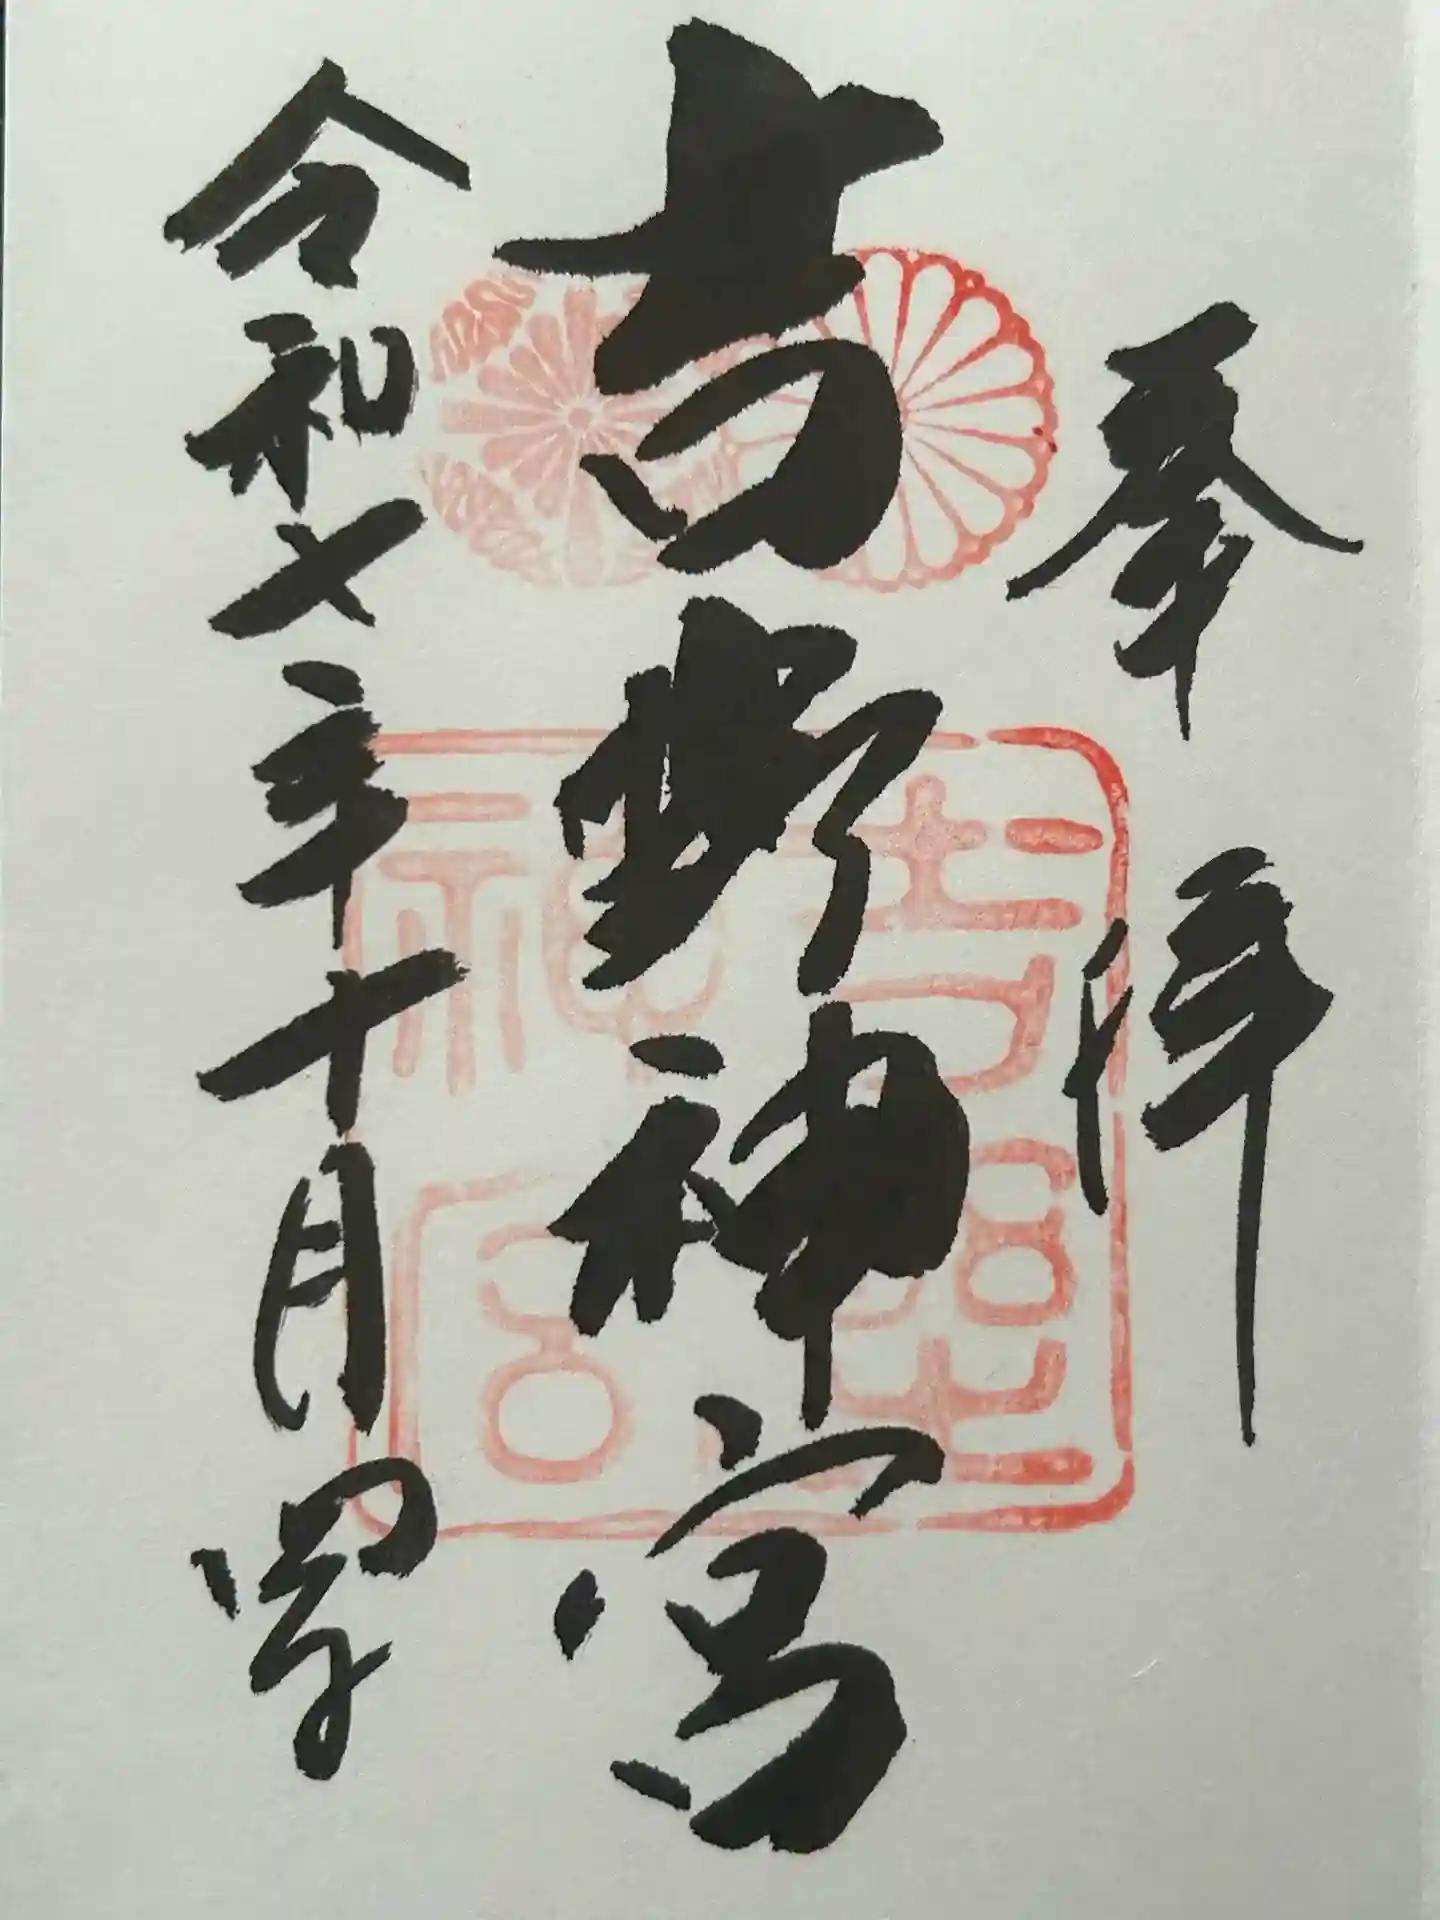 奉拝
吉野神宮
令和七年十月四日
吉野神宮